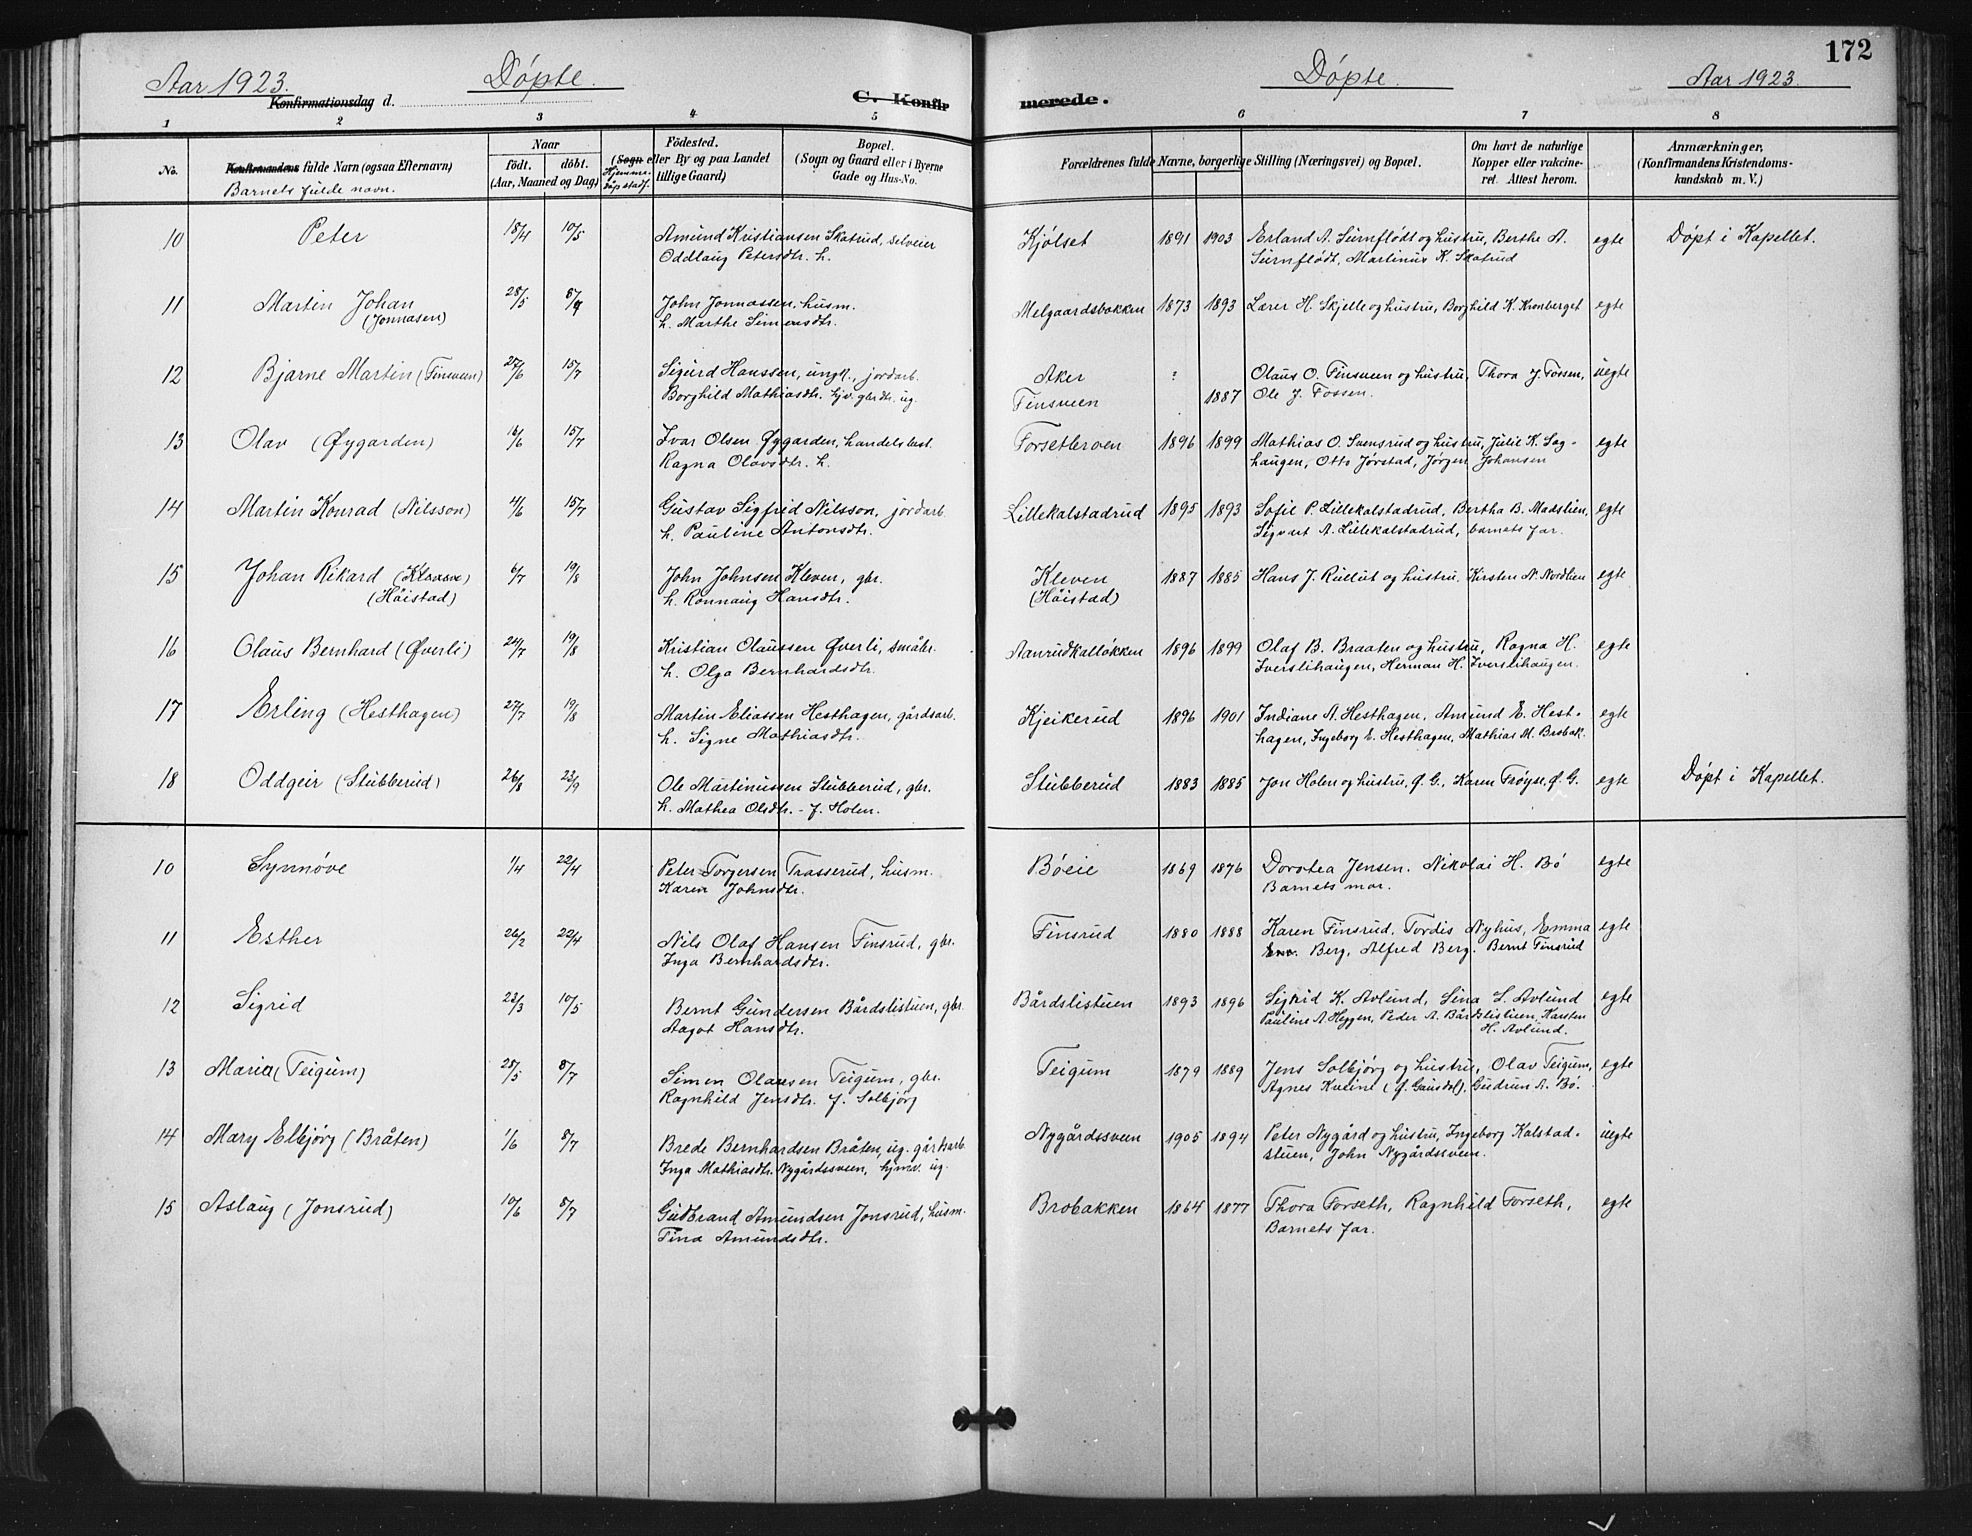 172
Aar 1923. Døpte. Døpte. Aar 1923.
Konfirmationsdag d. C. Konfir merede.
1 2 3 4 5 6 7 8
No. Konfirmandens fulde Navn (ogsaa Efternavn) Barnets fulde navn.
Naar født. døbt. (Aar, Maaned og Dag)
Fødested. (Sogn eller By og paa Landet tillige Gaard) Hjemme-døp stadf.
Bopæl. (Sogn og Gaard eller i Byerne Gade og Hus-No.
Forældrenes fulde Navne, borgerlige Stilling (Næringsvei) og Bopæl.
Om havt de naturlige Kopper eller vakcineret. Attest herom.
Anmærkninger, (Konfirmandens Kristendomskundskab m. V.)
10 Peter 18/4 10/5 Amund Kristiansen Skatrud, selveier Kjølset 1891 1903 Erland A. Surnflødt og hustru, Berthe A. egte Døpt i Kapellet.
Oddlaug Petersdtr. h. Surnflødt, Martinus K. Skatrud
11 Martin Johan 28/5 John Jonnassen, husm. Melgaardsbakken 1873 1893 Lærer H. Skjelle og hustru, Borghild K. Kronberget egte
(Jonnasen) h. Marthe Simensdtr.
12 Bjarne Martin (Finsveen) 27/6 15/7 Sigurd Hanssen, ungk., jordarb. Aker ? Olaus O. Finsveen og hustru, Thora J. Fossen, uegte
Borghild Mathiasdtr. hjv. gbrdtr. ug. Finsveen 1887 Ole J. Fossen.
13 Olav (Øygarden) 16/6 15/7 Ivar Olsen Øygarden, handelsbest. Forsetleroen 1896 1899 Mathias O. Svensrud og hustru, Julie K. Sag- egte
Ragna Olavsdtr. h. haugen, Otto Jørstad, Jørgen Johansen
14 Martin Konrad (Nilsson) 4/6 15/7 Gustav Sigfred Nilsson, jordarb. Lillekalstadrud 1895 1893 Sofie P. Lillekalstadrud, Bertha B. Madslien, egte
h. Pauline Antonsdtr. Sigvart A. Lillekalstadrud, barnets far.
15 Johan Rikard (Kleven) 6/7 19/8 John Johnsen Kleven, gbr. Kleven 1887 1885 Hans J. Rullut og hustru, Kirsten N. Nordlien egte
(Høistad) h. Rønnaug Hansdtr. (Høistad)
16 Olaus Bernhard (Øverli) 24/7 19/8 Kristian Olaussen Øverli, småbr. Aanrudkalløkken 1896 1899 Olaf B. Braaten og hustru, Ragna H. egte
h. Olga Bernhardsdtr. Iverslihaugen, Herman H. Iverslihaugen.
17 Erling (Hesthagen) 27/7 19/8 Martin Eliassen Hesthagen, gårdsarb. Kjeikerud 1896 1901 Indiane A. Hesthagen, Amund E. Hest- egte
h. Signe Mathiasdtr. hagen, Ingeborg E. Hesthagen, Mathias M. Brobak.
18 Oddgeir (Stubberud) 26/8 23/9 Ole Martinussen Stubberud, gbr. Stubberud 1883 1885 Jon Holen og hustru, Ø. G., Karen Frøyse, Ø. G. egte Døpt i Kapellet.
h. Mathea Olsdtr. - f. Holen.
10 Synnøve 1/4 22/4 Peter Torgersen Trasserud, husm. Bøeie 1869 1876 Dorotea Jensen. Nikolai H. Bø egte
Karen Johnsdtr. Barnets mor.
11 Esther 26/2 22/4 Nils Olaf Hansen Finsrud, gbr. Finsrud 1880 1888 Karen Finsrud, Tordis Nyhus, Emma egte
Inga Bernhardsdtr. Berg, Alfred Berg. Bernt Finsrud
12 Sigrid 23/3 10/5 Bernt Gundersen Bårdslistuen, gbr. Bårdslistuen 1893 1896 Sigrid K. Avlund, Sina S. Avlund egte
Aagot Hansdtr. Pauline A. Heggen, Peder A. Bårdslistuen, Karsten
H. Avlund.
13 Maria (Teigum) 28/5 8/7 Simen Olausen Teigum, gbr. Teigum 1879 1889 Jens Solbjørg og hustru, Olav Teigum, egte
Ragnhild Jensdtr. f. Solbjørg Agnes Kveine (Ø. Gausdal), Gudrun A. Bø.
14 Mary Elbjørg (Bråten) 1/6 8/7 Brede Bernhardsen Bråten, ug. gårdsarb. Nygårdssveen 1905 1894 Peter Nygård og hustru, Ingeborg Kalstad- uegte
Inga Mathiasdtr. Nygårdssveen, hjmv. ug. stuen, John Nygårdssveen.
15 Aslaug (Jonsrud) 10/6 8/7 Gudbrand Amundsen Jonsrud, husm. Brobakken 1864 1877 Thora Forseth, Ragnhild Forseth, egte
Tina Amundsdtr. Barnets far.